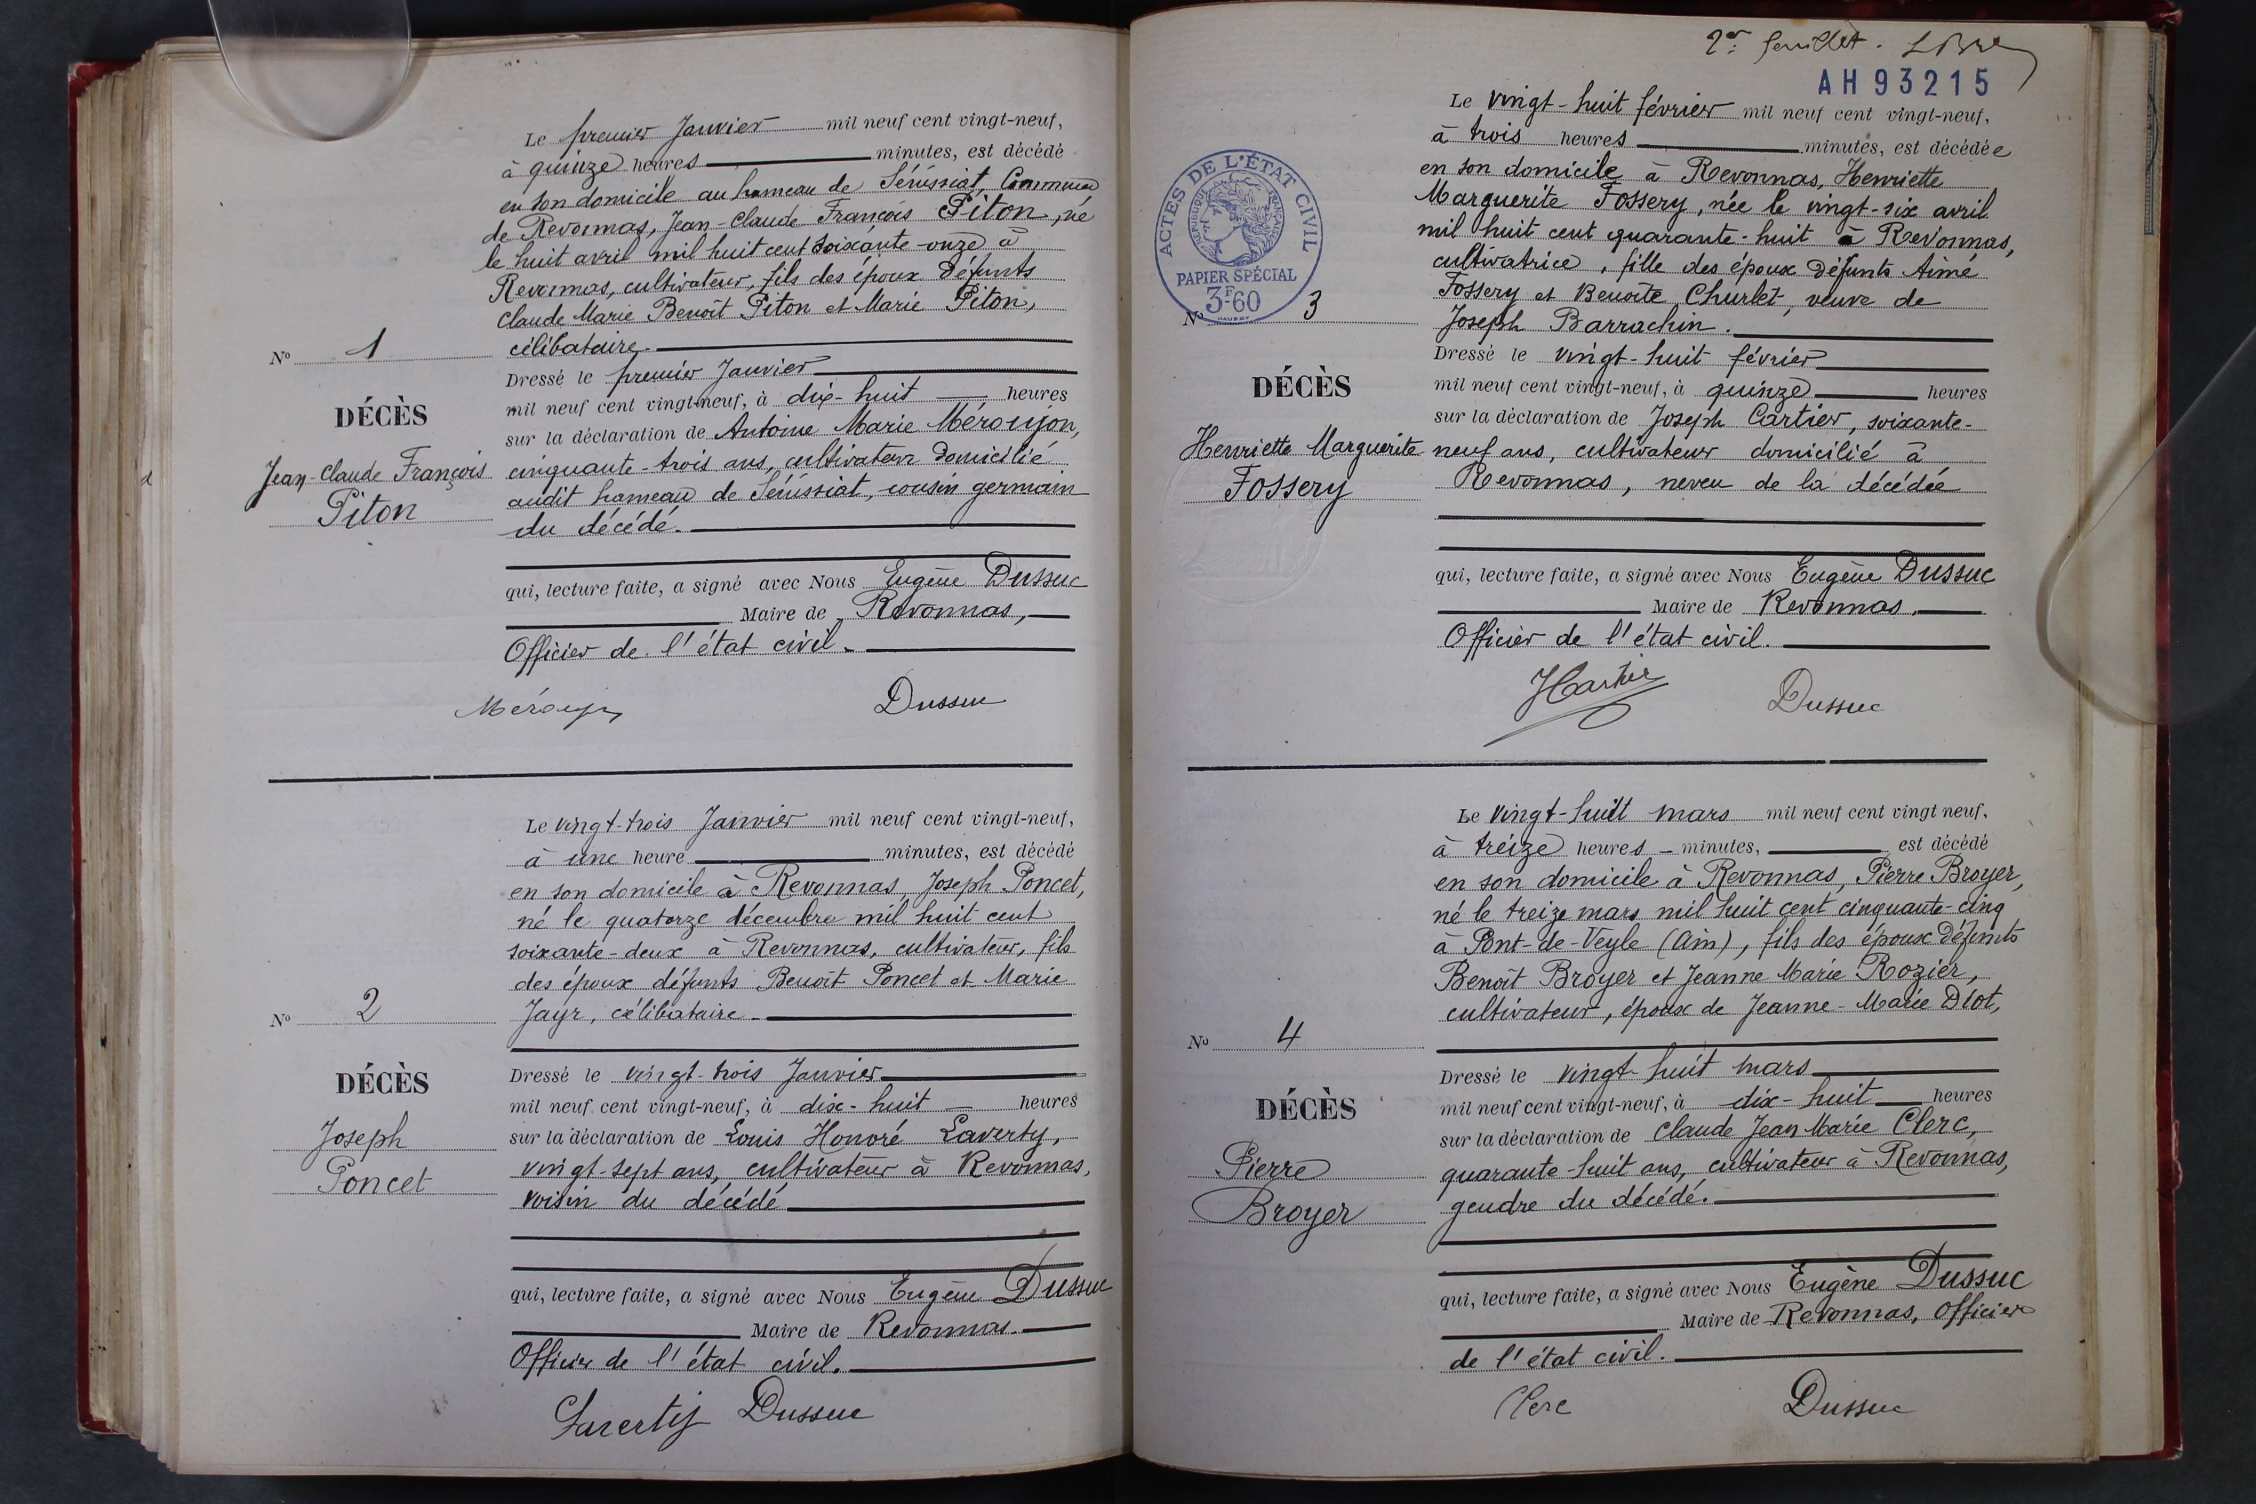 Le premier Janvier mil neuf cent vingt-neuf,
à quinze heures minutes, est décédé
en son domicile au hameau de Sénissiat, Commune
de Revonnas, Jean-Claude François Piton, né
le huit avril mil huit cent soixante-onze à
Revonnas, cultivateur, fils des époux défunts
Claude Marie Benoît Piton et Marie Piton,
célibataire.
No 1
Dressé le premier Janvier
mil neuf cent vingt-neuf, à dix-huit heures
DÉCÈS
sur la déclaration de Antoine Marie Méroujon,
Jean-Claude François
Piton
cinquante-trois ans, cultivateur domicilié
audit hameau de Sénissiat, cousin germain
du décédé.
qui, lecture faite, a signé avec Nous Eugène Dussuc
Maire de Revonnas,
Officier de l'état civil.
Dussuc
Le vingt-trois Janvier mil neuf cent vingt-neuf,
à une heure minutes, est décédé
en son domicile à Revonnas, Joseph Poncet,
né le quatorze décembre mil huit cent
soixante-deux à Revonnas, cultivateur, fils
des époux défunts Benoît Poncet et Marie
Jayr, célibataire
No 2
DÉCÈS
Joseph
Poncet
Dressé le vingt-trois Janvier
mil neuf cent vingt-neuf, à dix-huit heures
sur la déclaration de Louis Honoré Laverty,
vingt-sept ans, cultivateur à Revonnas,
voisin du décédé
qui, lecture faite, a signé avec Nous Eugène Dussuc
Maire de Revonnas.
Officier de l'état civil.
Dussuc
2e feuillet.
AH93215
Le vingt-huit février mil neuf cent vingt-neuf,
à trois heures minutes, est décédée
en son domicile à Revonnas, Henriette
Marguerite Fossery, née le vingt-six avril
mil huit cent quarante-huit à Revonnas,
cultivatrice, fille des époux défunts Aimé
Fossery et Benoîte Churlet, veuve de
Joseph Barrachin.
ACTES DE L'ÉTAT CIVIL
RÉPUBLIQUE FRANÇAISE
PAPIER SPÉCIAL
3F60
No 3
DÉCÈS
Henriette Marguerite
Fossery
Dressé le vingt-huit février
mil neuf cent vingt-neuf, à quinze heures
sur la déclaration de Joseph Cartier, soixante-
neuf ans, cultivateur domicilié à
Revonnas, neveu de la décédée
qui, lecture faite, a signé avec Nous Eugène Dussuc
Maire de Revonnas,
Officier de l'état civil.
Dussuc
Le vingt-huit mars mil neuf cent vingt neuf,
à treize heures minutes, est décédé
en son domicile à Revonnas, Pierre Broyer,
né le treize mars mil huit cent cinquante-cinq
à Pont-de-Veyle (Ain), fils des époux défunts
Benoît Broyer et Jeanne Marie Rozier,
cultivateur, époux de Jeanne-Marie Diot,
No 4
DÉCÈS
Pierre
Broyer
Dressé le vingt-huit mars
mil neuf cent vingt-neuf, à dix-huit heures
sur la déclaration de Claude Jean Marie Clerc,
quarante-huit ans, cultivateur à Revonnas,
gendre du décédé.
qui, lecture faite, a signé avec Nous Eugène Dussuc
Maire de Revonnas, Officier
de l'état civil.
Clerc Dussuc